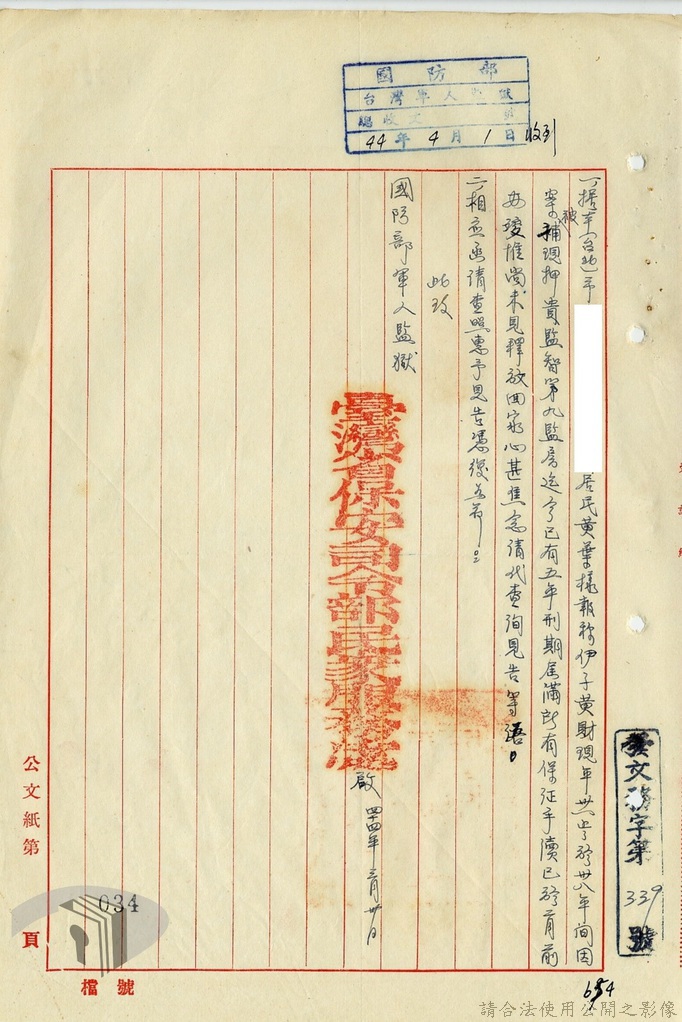 國防部
台灣軍人監獄
總收文 號
44年4月1日
收到
一、據本(台北)市 居民黃葉樣報稱伊子黃財現年卅六歲於卅八年間因
案被捕現押貴監智第九監房迄今已有五年刑期屆滿所有保証手續已於二月前
辦竣惟尚未見釋放回家心甚焦念請代查詢見告等語。
二、相應函請查照惠予見告憑復為荷。
此致
國防部軍人監獄
臺灣省保安司令部民眾服務處
啟 四十四年三月卅日
發文務字第339號
公文紙第 頁
034
檔號
654
請合法使用公開之影像